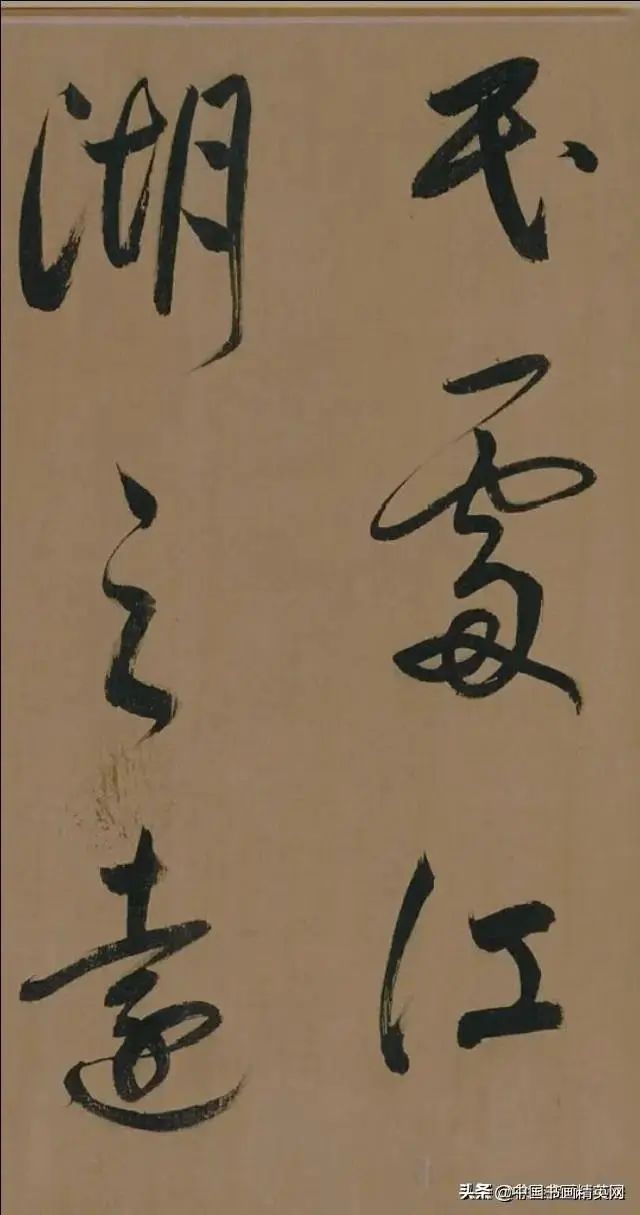 民處江
湖之遠
头条 @中国书画精英网